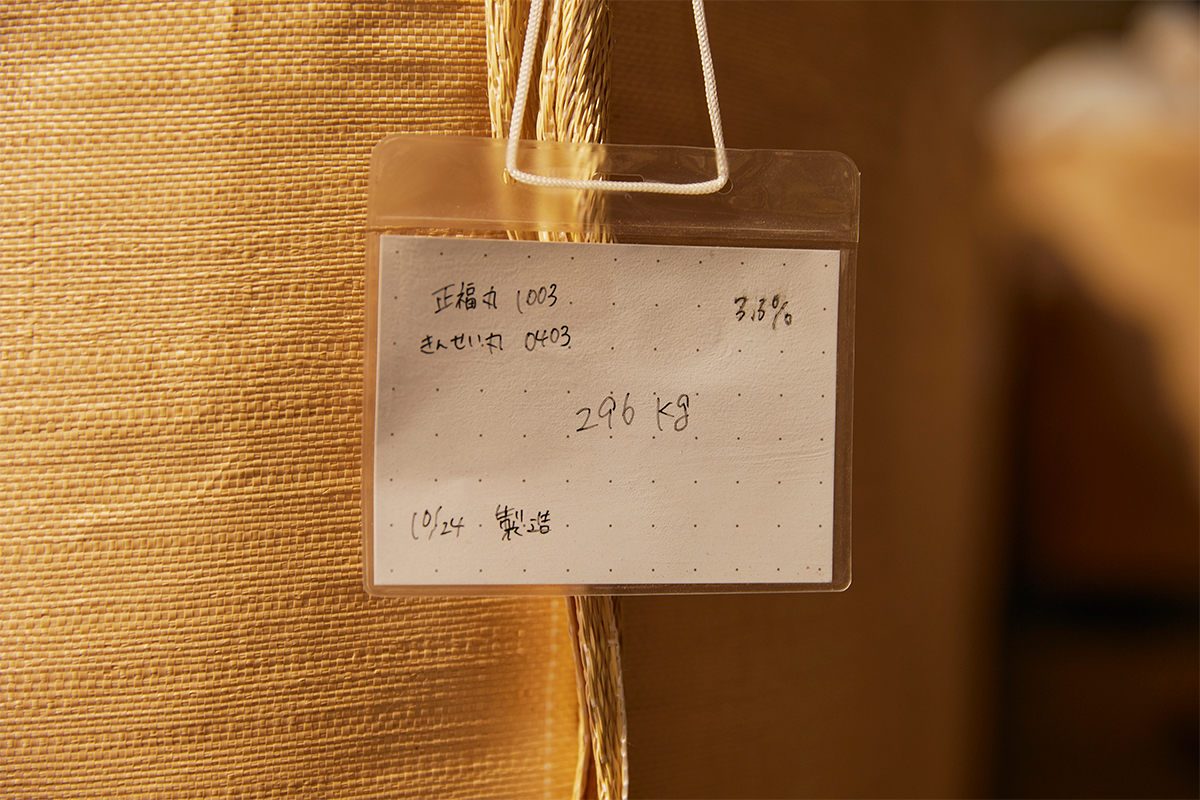 正福丸 1003
3.3%
きんせい丸 0403
296 kg
10/24 製造